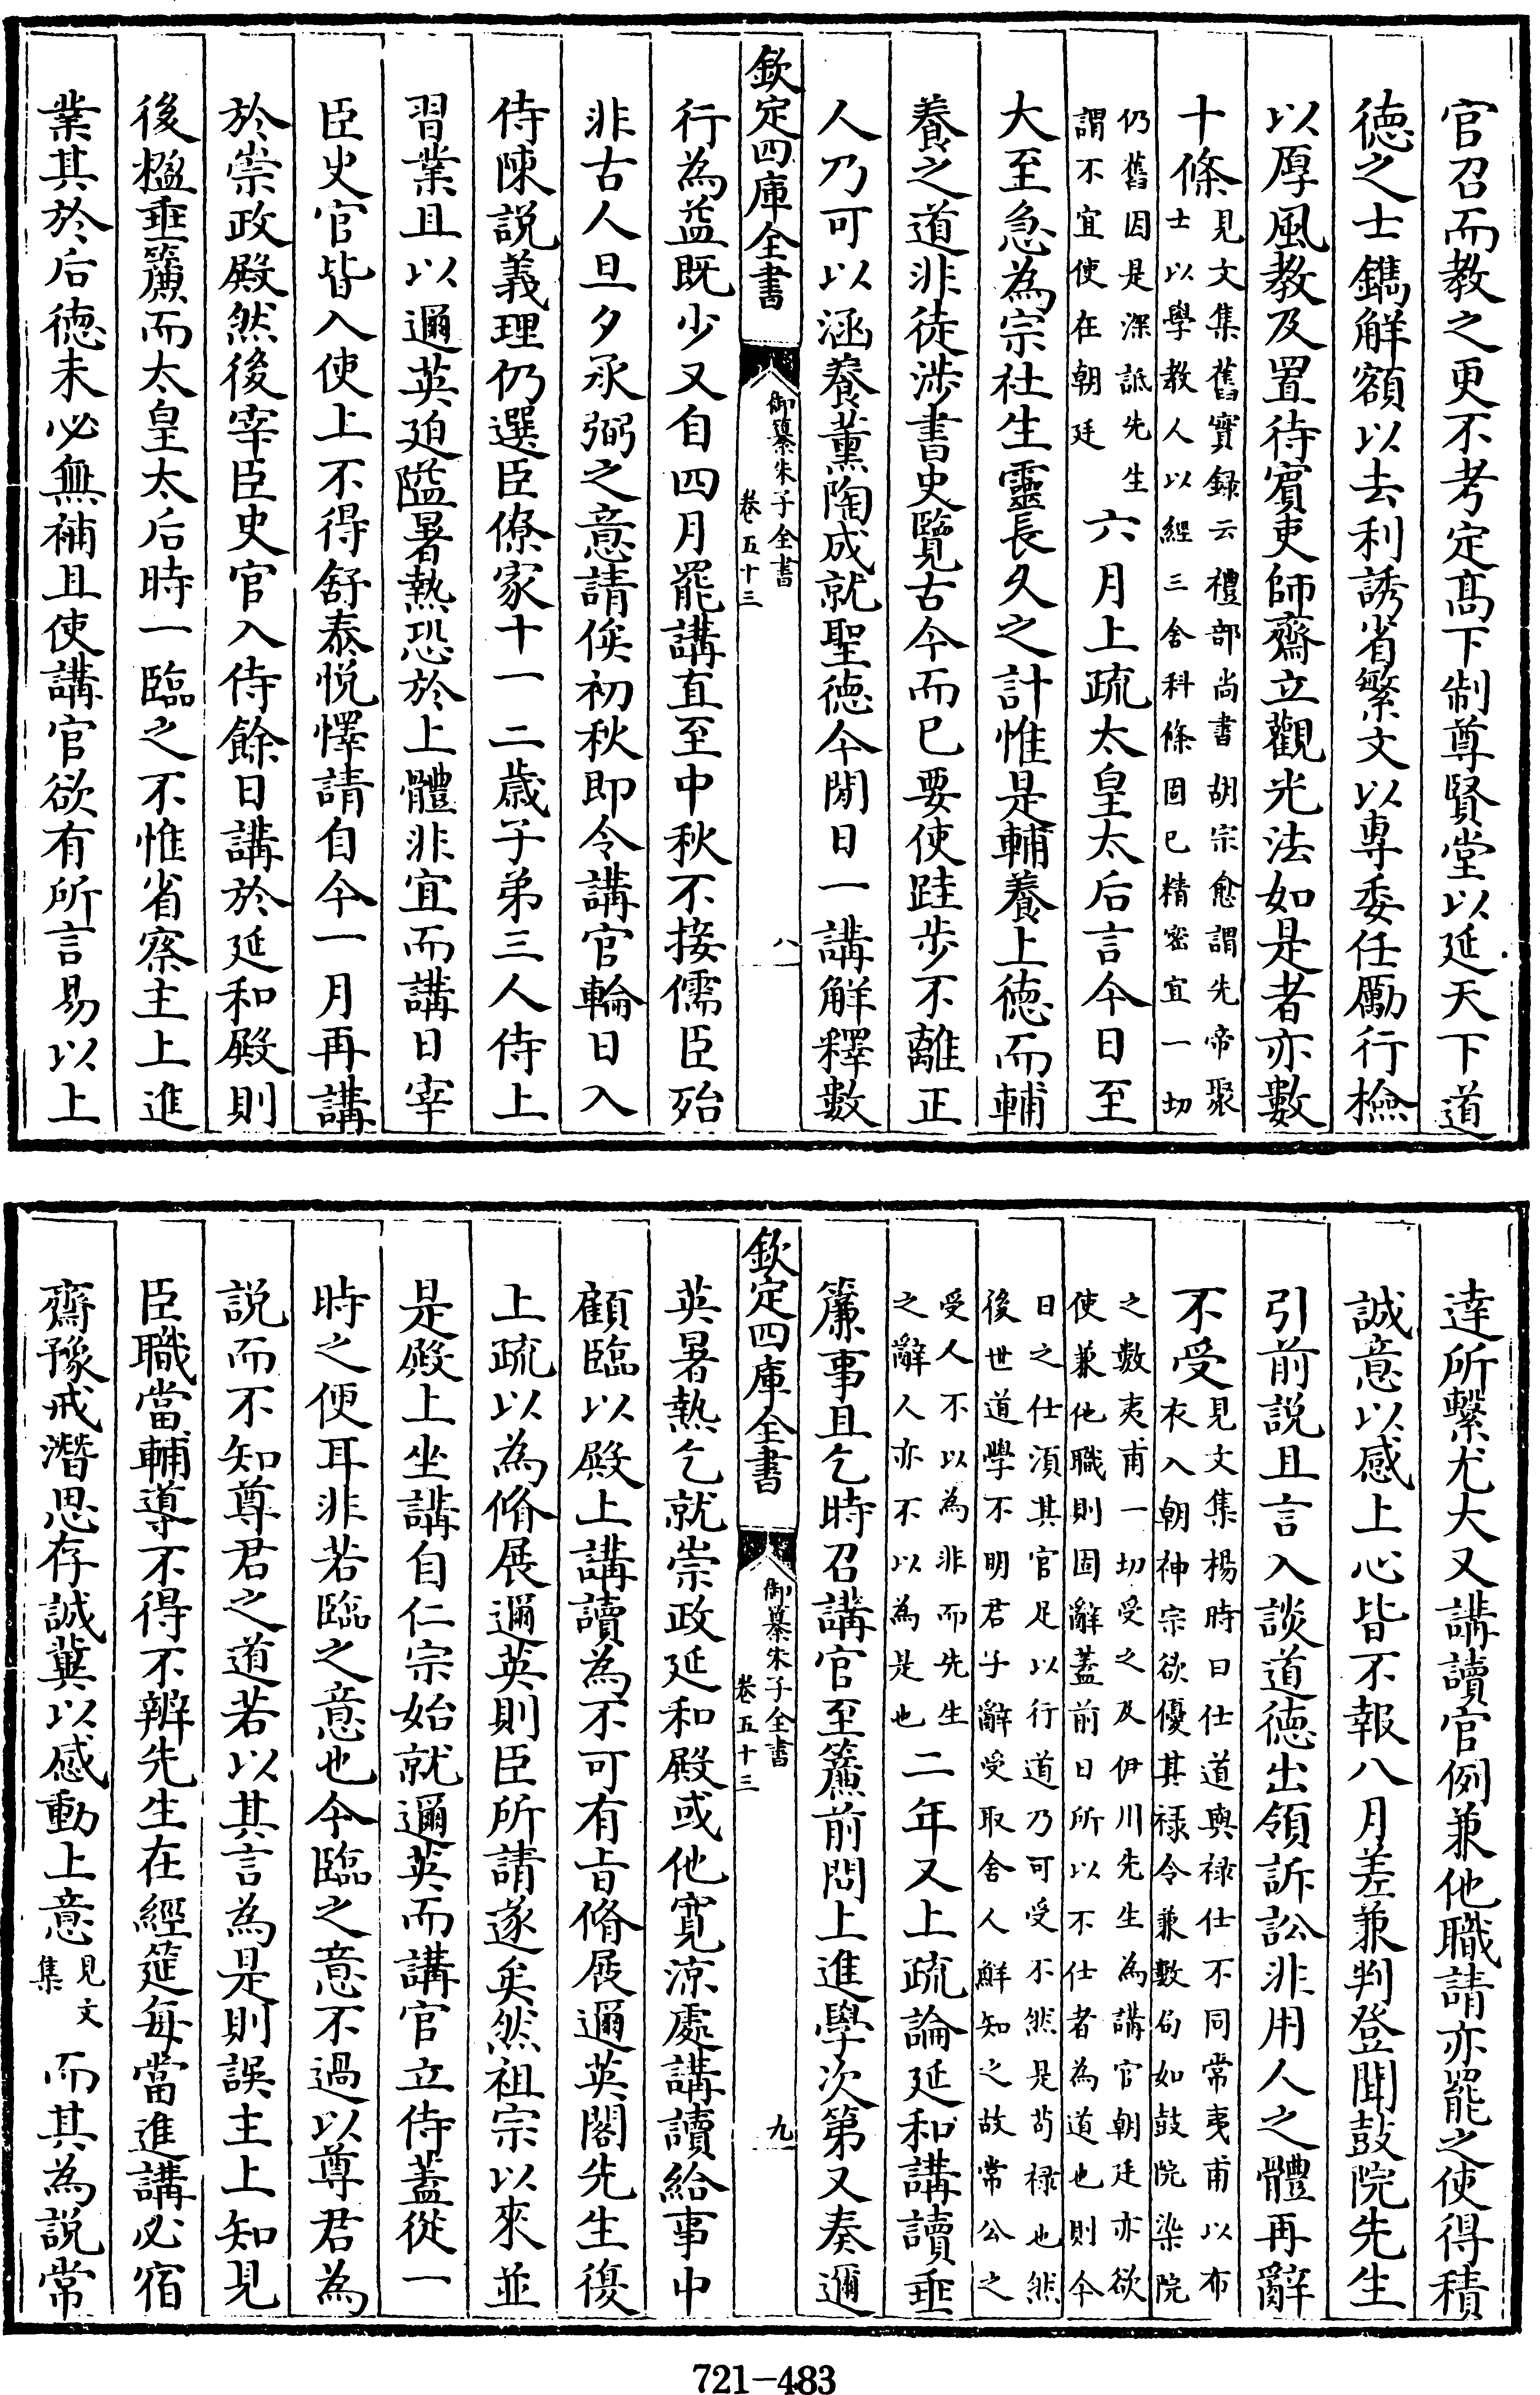 官召而教之更不考定髙下制尊賢堂以延天下道
徳之士鐫解額以去利誘省繁文以專委任勵行檢
以厚風教及置待賓吏師齋立觀光法如是者亦數
十條見文集舊實録云禮部尚書胡宗愈謂先帝聚
士以學教人以經三舍科條固已精密宜一切
仍舊因是深詆先生
謂不宜使在朝廷
六月上疏太皇太后言今日至
大至急為宗社生靈長久之計惟是輔養上徳而輔
養之道非徒涉書史覽古今而已要使跬步不離正
人乃可以涵養薰陶成就聖徳今閒日一講解釋數
欽定四庫全書
御纂朱子全書
卷五十三
八
行為益既少又自四月罷講直至中秋不接儒臣殆
非古人旦夕承弼之意請俟初秋即令講官輪日入
侍陳説義理仍選臣僚家十一二歲子弟三人侍上
習業且以邇英迫隘暑熱恐於上體非宜而講日宰
臣史官皆入使上不得舒泰悦懌請自今一月再講
於崇政殿然後宰臣史官入侍餘日講於延和殿則
後楹垂簾而太皇太后時一臨之不惟省察主上進
業其於后徳未必無補且使講官欲有所言易以上
達所繫尤大又講讀官例兼他職請亦罷之使得積
誠意以感上心皆不報八月差兼判登聞鼓院先生
引前説且言入談道徳出領訴訟非用人之體再辭
不受見文集楊時曰仕道與禄仕不同常夷甫以布
衣入朝神宗欲優其禄令兼數局如鼓院染院
之數夷甫一切受之及伊川先生為講官朝廷亦欲
使兼他職則固辭蓋前日所以不仕者為道也則今
日之仕須其官足以行道乃可受不然是苟禄也然
後世道學不明君子辭受取舍人鮮知之故常公之
受人不以為非而先生
之辭人亦不以為是也
二年又上疏論延和講讀垂
簾事且乞時召講官至簾前問上進學次第又奏邇
欽定四庫全書
御纂朱子全書
卷五十三
九
英暑熱乞就崇政延和殿或他寛涼處講讀給事中
顧臨以殿上講讀為不可有㫖脩展邇英閣先生復
上疏以為脩展邇英則臣所請遂矣然祖宗以來並
是殿上坐講自仁宗始就邇英而講官立侍蓋從一
時之便耳非若臨之意也今臨之意不過以尊君為
説而不知尊君之道若以其言為是則誤主上知見
臣職當輔導不得不辨先生在經筵每當進講必宿
齋豫戒潛思存誠冀以感動上意見文
集
而其為説常
721-483